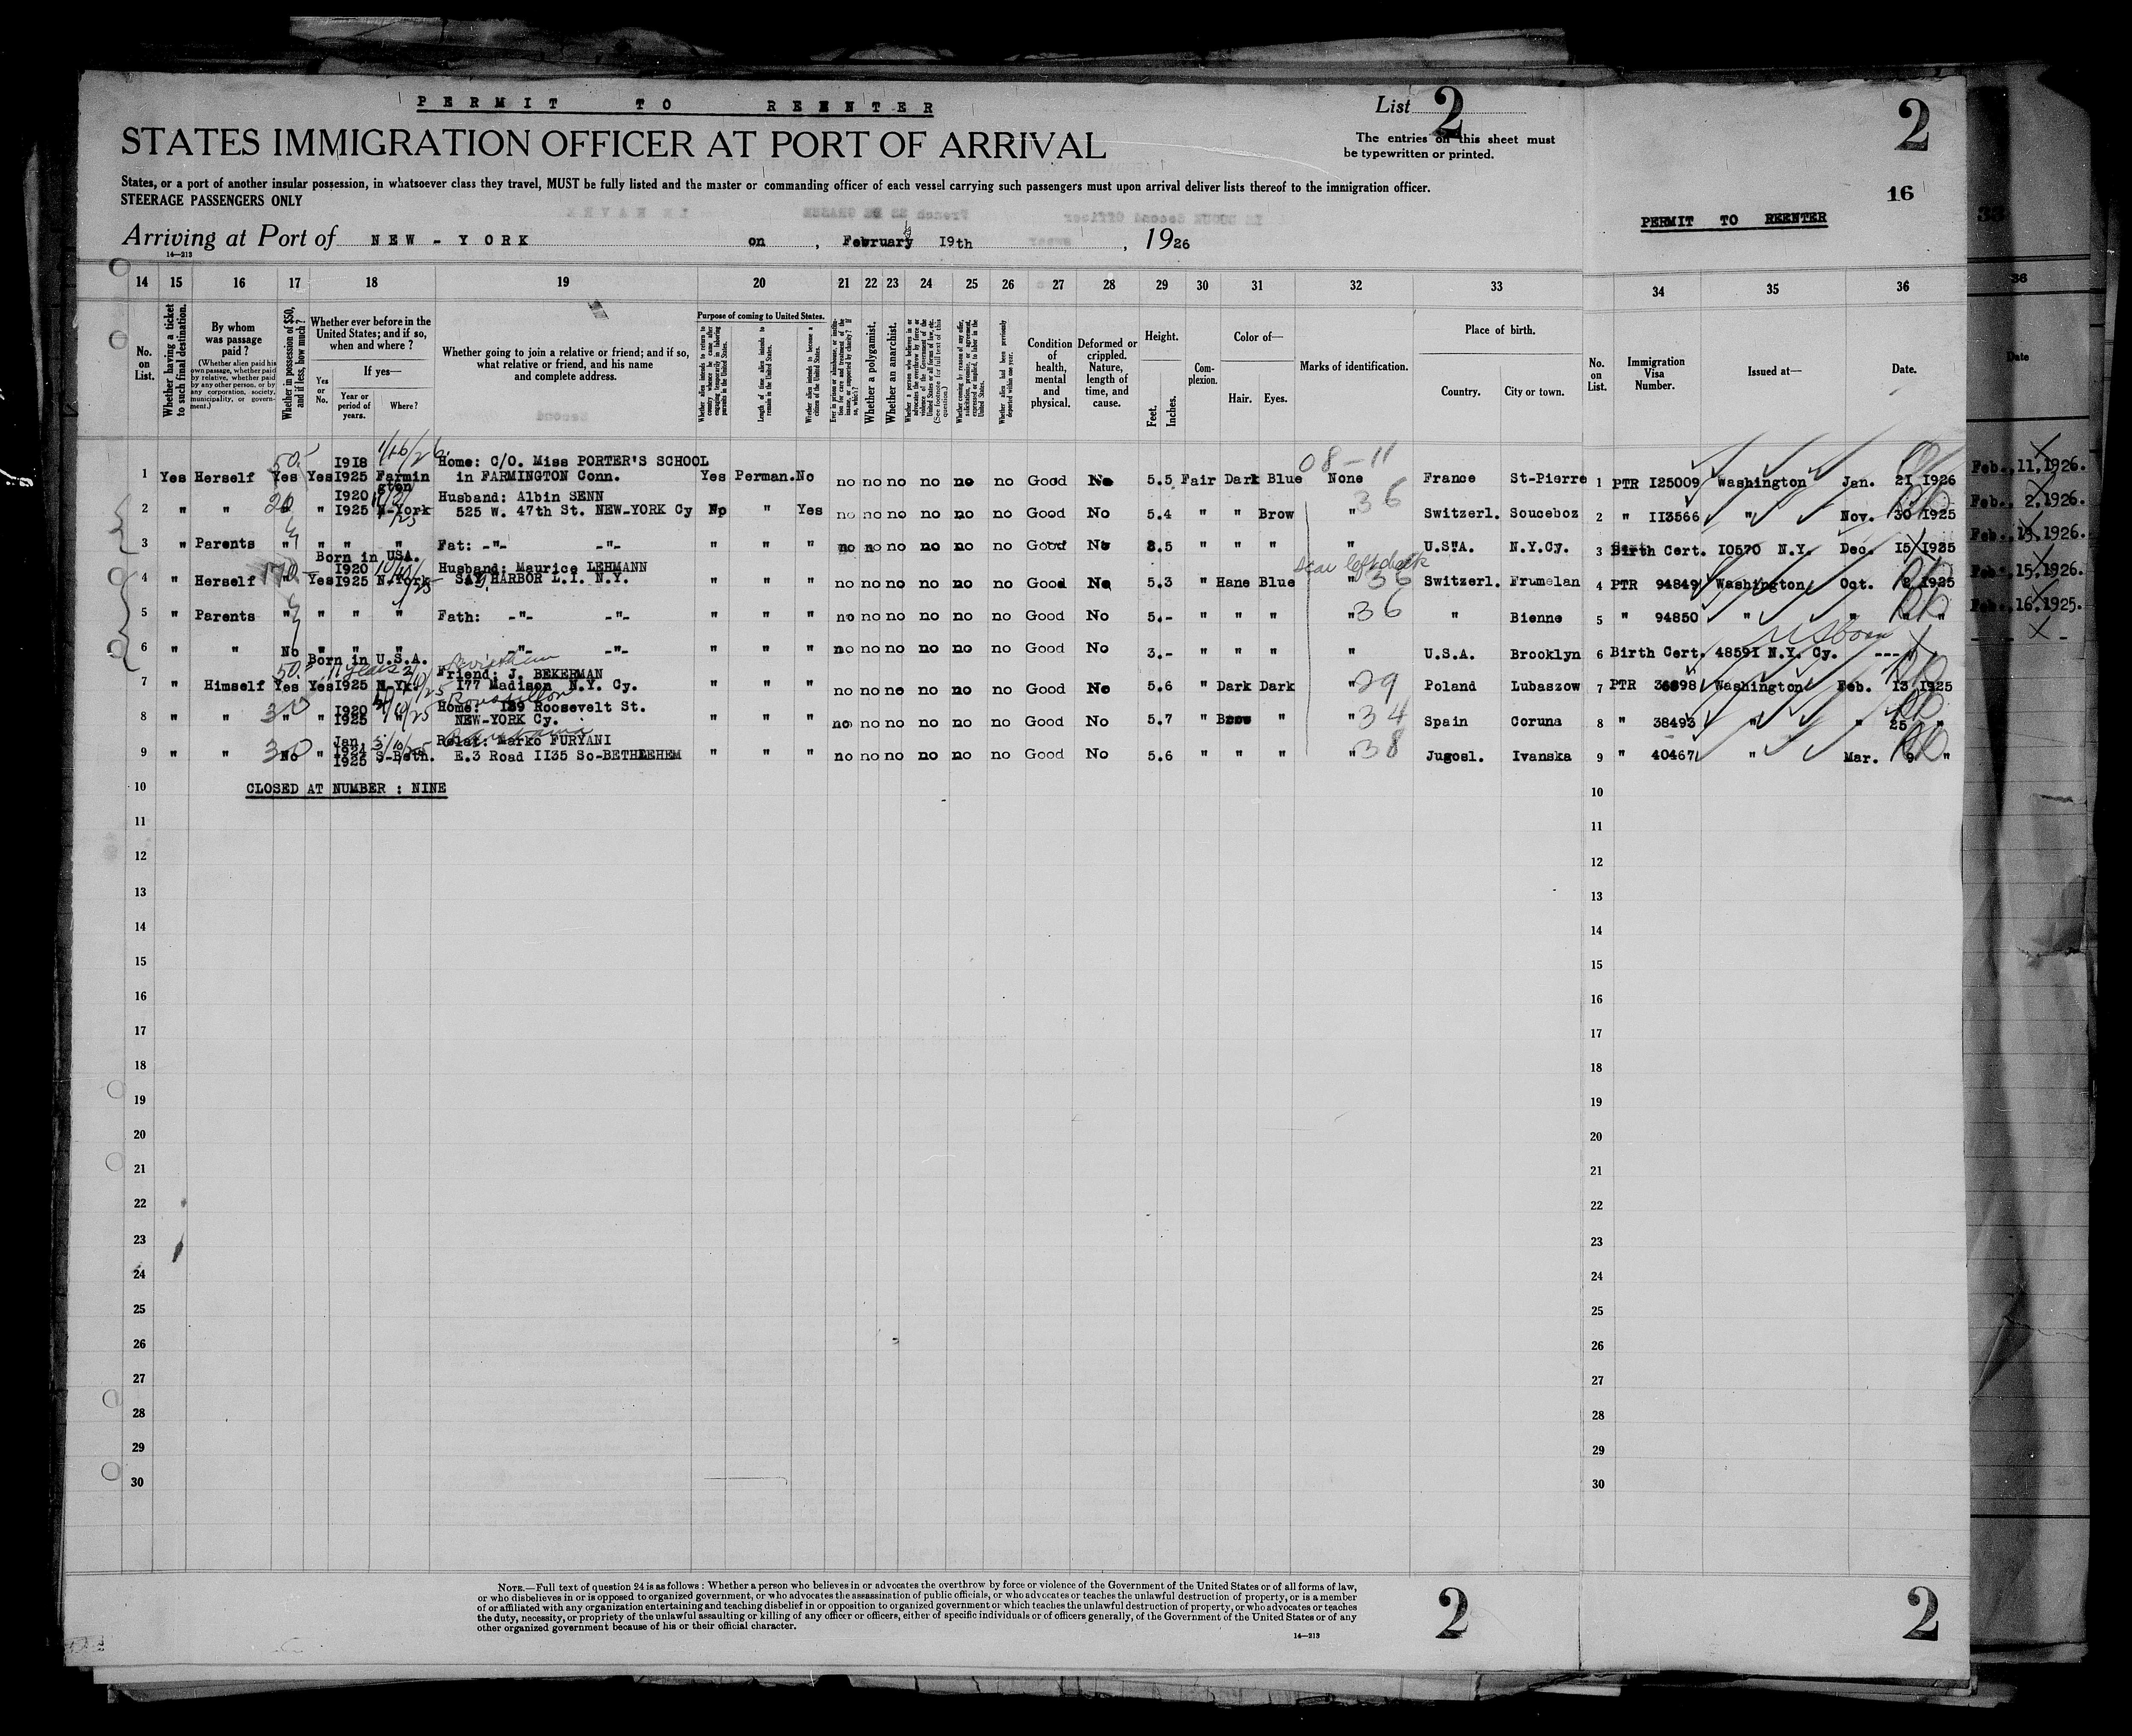 PERMIT TO REENTER
List 2
2
STATES IMMIGRATION OFFICER AT PORT OF ARRIVAL
The entries on this sheet must
be typewritten or printed.
States, or a port of another insular possession, in whatsoever class they travel, MUST be fully listed and the master or commanding officer of each vessel carrying such passengers must upon arrival deliver lists thereof to the immigration officer.
STEERAGE PASSENGERS ONLY
16
PERMIT TO REENTER
Arriving at Port of NEW-YORK on, February 19th, 1926
14—213
14 15 16 17 18 19 20 21 22 23 24 25 26 27 28 29 30 31 32 33 34 35 36
No. on List.
Whether having a ticket to such final destination.
By whom was passage paid?
(Whether alien paid his own passage, whether paid by relative, whether paid by any other person, or by any corporation, society, municipality, or government.)
Whether in possession of $50, and if less, how much?
Whether ever before in the United States; and if so, when and where?
Yes or No.
If yes—
Year or period of years.
Where?
Whether going to join a relative or friend; and if so, what relative or friend, and his name and complete address.
Purpose of coming to United States.
Whether alien intends to return to country whence he came after engaging temporarily in laboring pursuits in the United States.
Length of time alien intends to remain in the United States.
Whether alien intends to become a citizen of the United States.
Whether a polygamist.
Whether an anarchist.
Condition of health, mental and physical.
Deformed or crippled. Nature, length of time, and cause.
Height.
Feet. Inches.
Complexion.
Color of—
Hair. Eyes.
Marks of identification.
Place of birth.
Country. City or town.
No. on List.
Immigration Visa Number.
Issued at—
Date.
1 Yes Herself Yes Yes 1918 1925 Farmington Home: C/O. Miss PORTER'S SCHOOL in FARMINGTON Conn. Yes Perman. No no no no no no no Good No 5.5 Fair Dark Blue None France St-Pierre 1 PTR I25009 Washington Jan. 21 1926
2 " " 20 " I920 I925 N-York Husband: Albin SENN 525 W. 47th St. NEW-YORK Cy No " Yes no no no no no no Good No 5.4 " " Brow " 36 Switzerl. Souceboz 2 " II3566 " Nov. 30 1925
3 " Parents " " " " Born in USA. Fat: -"- -"- " " " no no no no no no Good No 3.5 " " " " U.S.A. N.Y.Cy. 3 Birth Cert. I0570 N.Y. Dec. I5 1925
4 " Herself " Yes I920 I925 N.York Husband: Maurice LEHMANN SAG HARBOR L.I. N.Y. " " " no no no no no no Good No 5.3 " Hane Blue " 36 Switzerl. Frumelan 4 PTR 94849 Washington Oct. 2 1925
5 " Parents " " " " Father: -"- -"- " " " no no no no no no Good No 5.- " " " " 36 " Bienne 5 " 94850 " " " "
6 " " No " " " Born in U.S.A. -"- -"- " " " no no no no no no Good No 3.- " " " " U.S.A. Brooklyn 6 Birth Cert. 4859I N.Y. Cy. ----
7 " Himself Yes Yes 1925 N-Yk. Friend: J. BEKERMAN I77 Madison N.Y. Cy. " " " no no no no no no Good No 5.6 " Dark Dark " 29 Poland Lubaszow 7 PTR Washington Feb. I3 1925
8 " " " " I920 I925 " Home: I39 Roosevelt St. NEW-YORK Cy. " " " no no no no no no Good No 5.7 " " " 34 Spain Coruna 8 " 38493 " " 25 "
9 " " No " Jan. I924 I925 S-Beth. Relat: Marko FURYANI E.3 Road II35 So-BETHLEHEM " " " no no no no no no Good No 5.6 " " " " 38 Jugosl. Ivanska 9 " 40467 " Mar. 9 "
10 CLOSED AT NUMBER : NINE 10
11 11
12 12
13 13
14 14
15 15
16 16
17 17
18 18
19 19
20 20
21 21
22 22
23 23
24 24
25 25
26 26
27 27
28 28
29 29
30 30
36
Date
Feb., 11, 1926.
Feb., 2, 1926.
Feb., 15, 1926.
Feb., 16, 1925.
NOTE.—Full text of question 24 is as follows: Whether a person who believes in or advocates the overthrow by force or violence of the Government of the United States or of all forms of law,
or who disbelieves in or is opposed to organized government, or who advocates the assassination of public officials, or who advocates or teaches the unlawful destruction of property, or is a member
of or affiliated with any organization entertaining and teaching disbelief in or opposition to organized government or which teaches the unlawful destruction of property, or who advocates or teaches
the duty, necessity, or propriety of the unlawful assaulting or killing of any officer or officers, either of specific individuals or of officers generally, of the Government of the United States or of any
other organized government because of his or their official character.
14—213
2
2